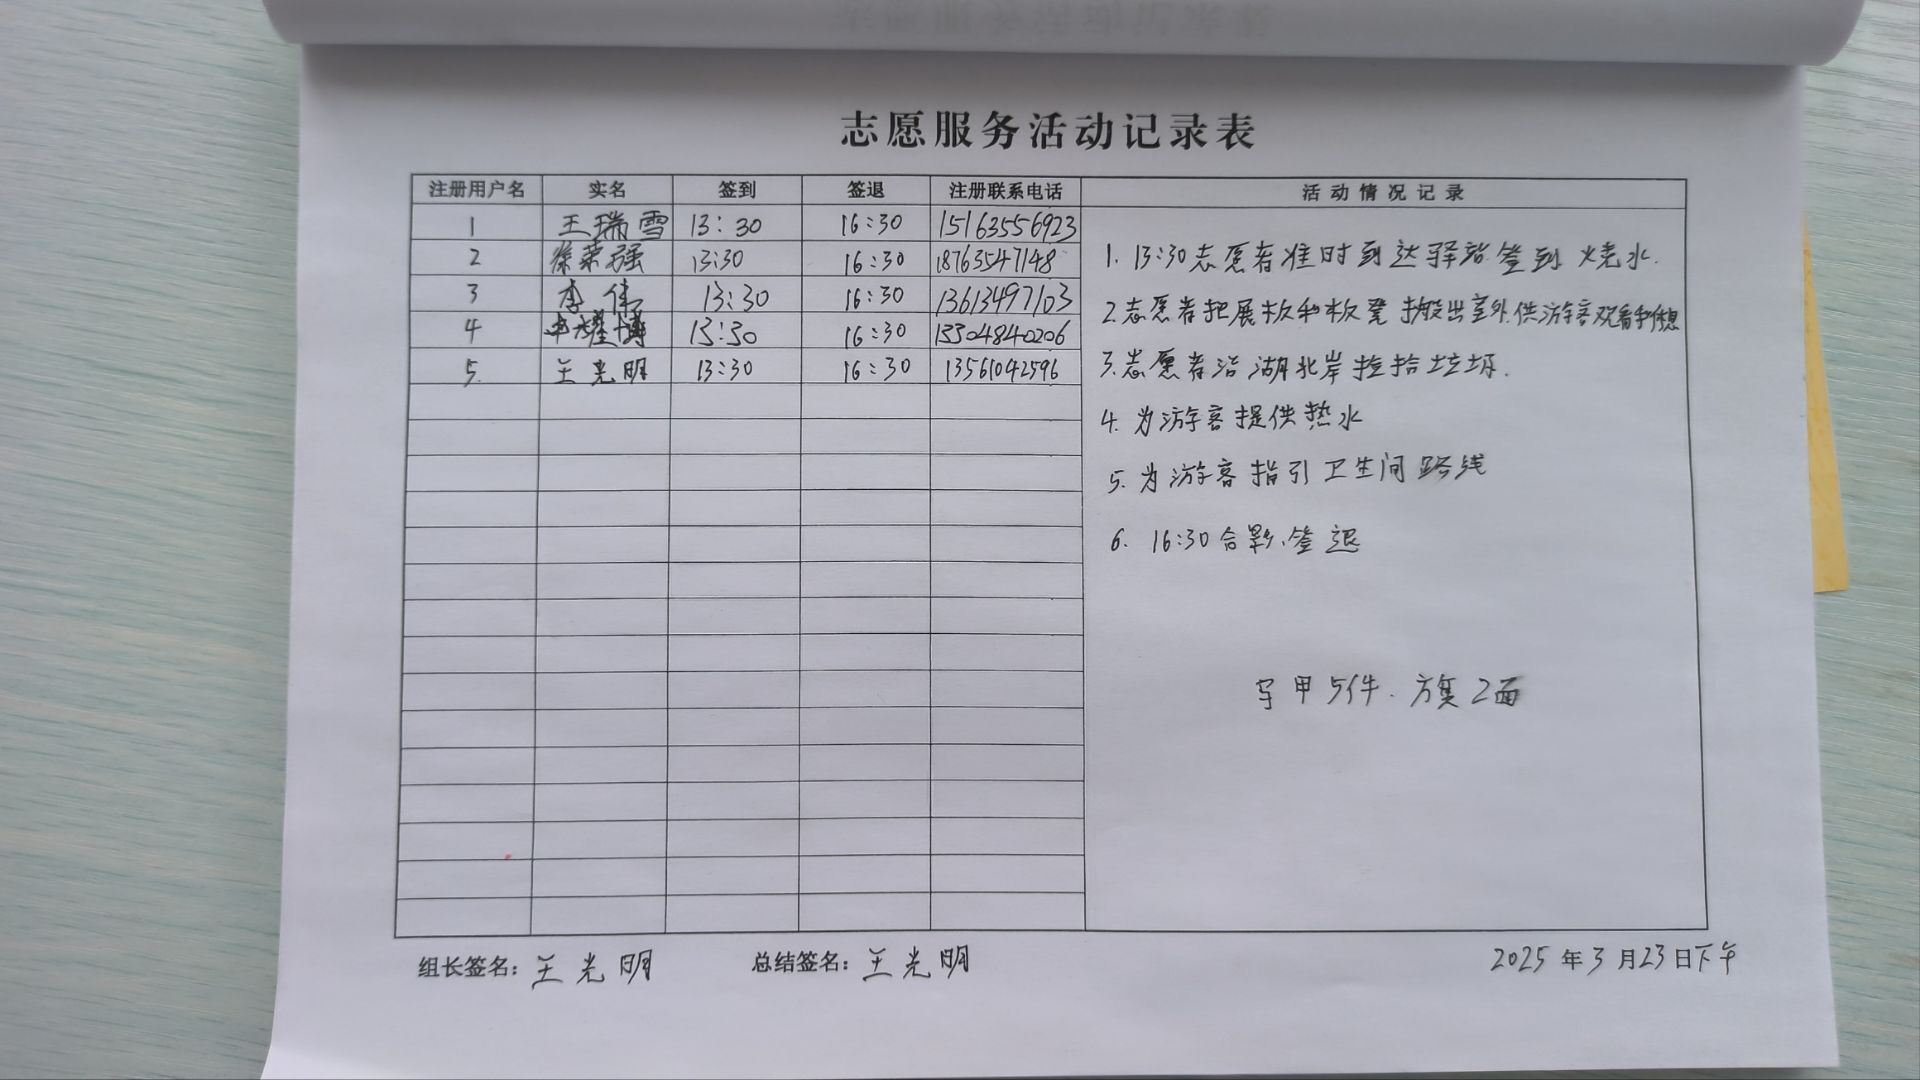 志愿服务活动记录表
注册用户名 实名 签到 签退 注册联系电话 活动情况记录
1 王瑞雪 13:30 16:30 15163556923
2 徐荣强 13:30 16:30 18763547148
3 李伟 13:30 16:30 13613497103
4 耀博 13:30 16:30 15504840206
5. 王光明 13:30 16:30 13561042596
1. 13:30志愿者准时到达驿站签到 烧水.
2.志愿者把展板和板凳搬出室外.供游客观看和休息
3.志愿者沿湖北岸捡拾垃圾.
4. 为游客提供热水
5. 为游客指引卫生间路线
6. 16:30合影、签退
甲5件. 方集2面
组长签名：王光明 总结签名：王光明 2025年3月23日下午